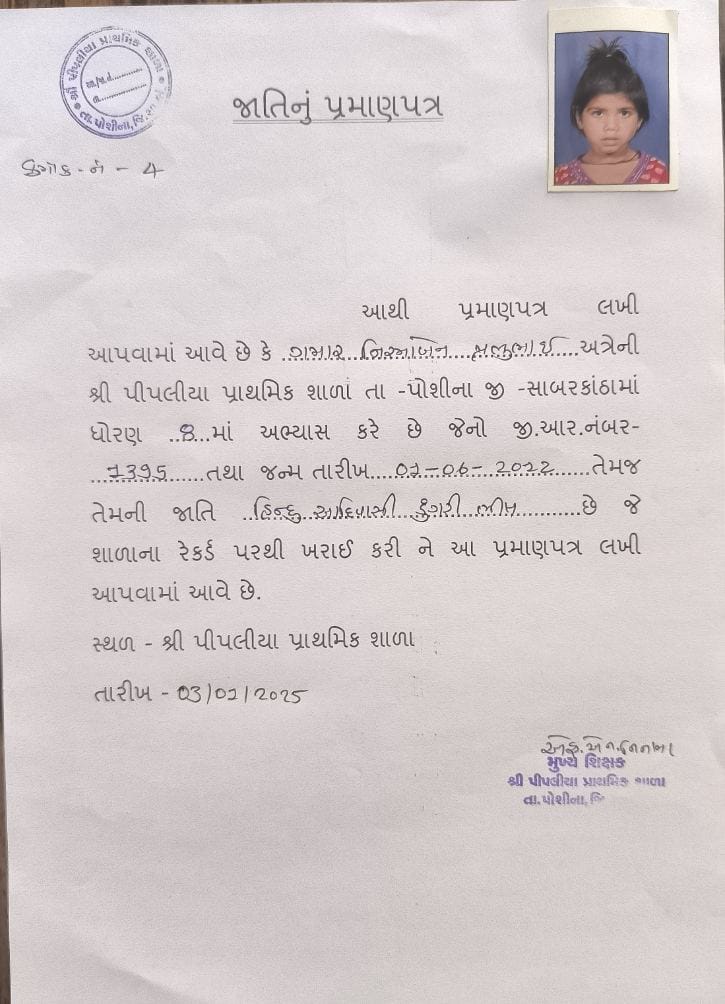 શ્રી પીપલીયા પ્રાથમિક શાળા
તા.પોશીના, જિ.
જાતિનું પ્રમાણપત્ર
ક્રમાંક - નં - 4
આથી પ્રમાણપત્ર લખી
આપવામાં આવે છે કે ગમાર નિરમાબેન મલુભાઈ અત્રેની
શ્રી પીપલીયા પ્રાથમિક શાળાં તા -પોશીના જી -સાબરકાંઠામાં
ધોરણ ..8...માં અભ્યાસ કરે છે જેનો જી.આર.નંબર-
1395 તથા જન્મ તારીખ 01-06- તેમજ
તેમની જાતિ હિન્દુ આદિવાસી ડુંગરી ભીલ છે જે
શાળાના રેકર્ડ પરથી ખરાઈ કરી ને આ પ્રમાણપત્ર લખી
આપવામાં આવે છે.
સ્થળ - શ્રી પીપલીયા પ્રાથમિક શાળા
તારીખ - 03/01/2025
મુખ્ય શિક્ષક
શ્રી પીપલીયા પ્રાથમિક શાળા
તા.પોશીના, જિ